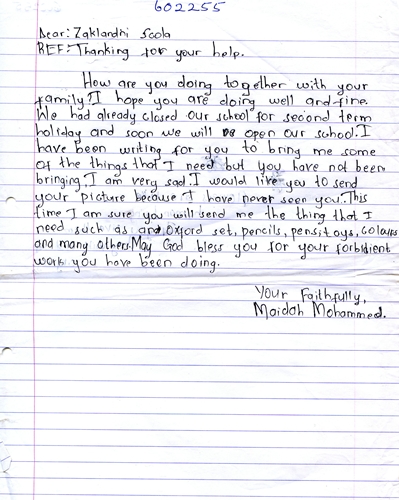 602255
Dear: Zaklandhi Soola
REF: Thanking for your help.
How are you doing together with your
family? I hope you are doing well and fine.
We had already closed our school for second term
holiday and soon we will open our school. I
have been writing for you to bring me some
of the things that I need but you have not been
bringing. I am very sad. I would like you to send
your picture because I have never seen you. This
time I am sure you will send me the thing that I
need such as and Oxford set, pencils, pens, toys, colours
and many others. May God bless you for your forbidient
work you have been doing.
Your Faithfully,
Maidah Mohammed.